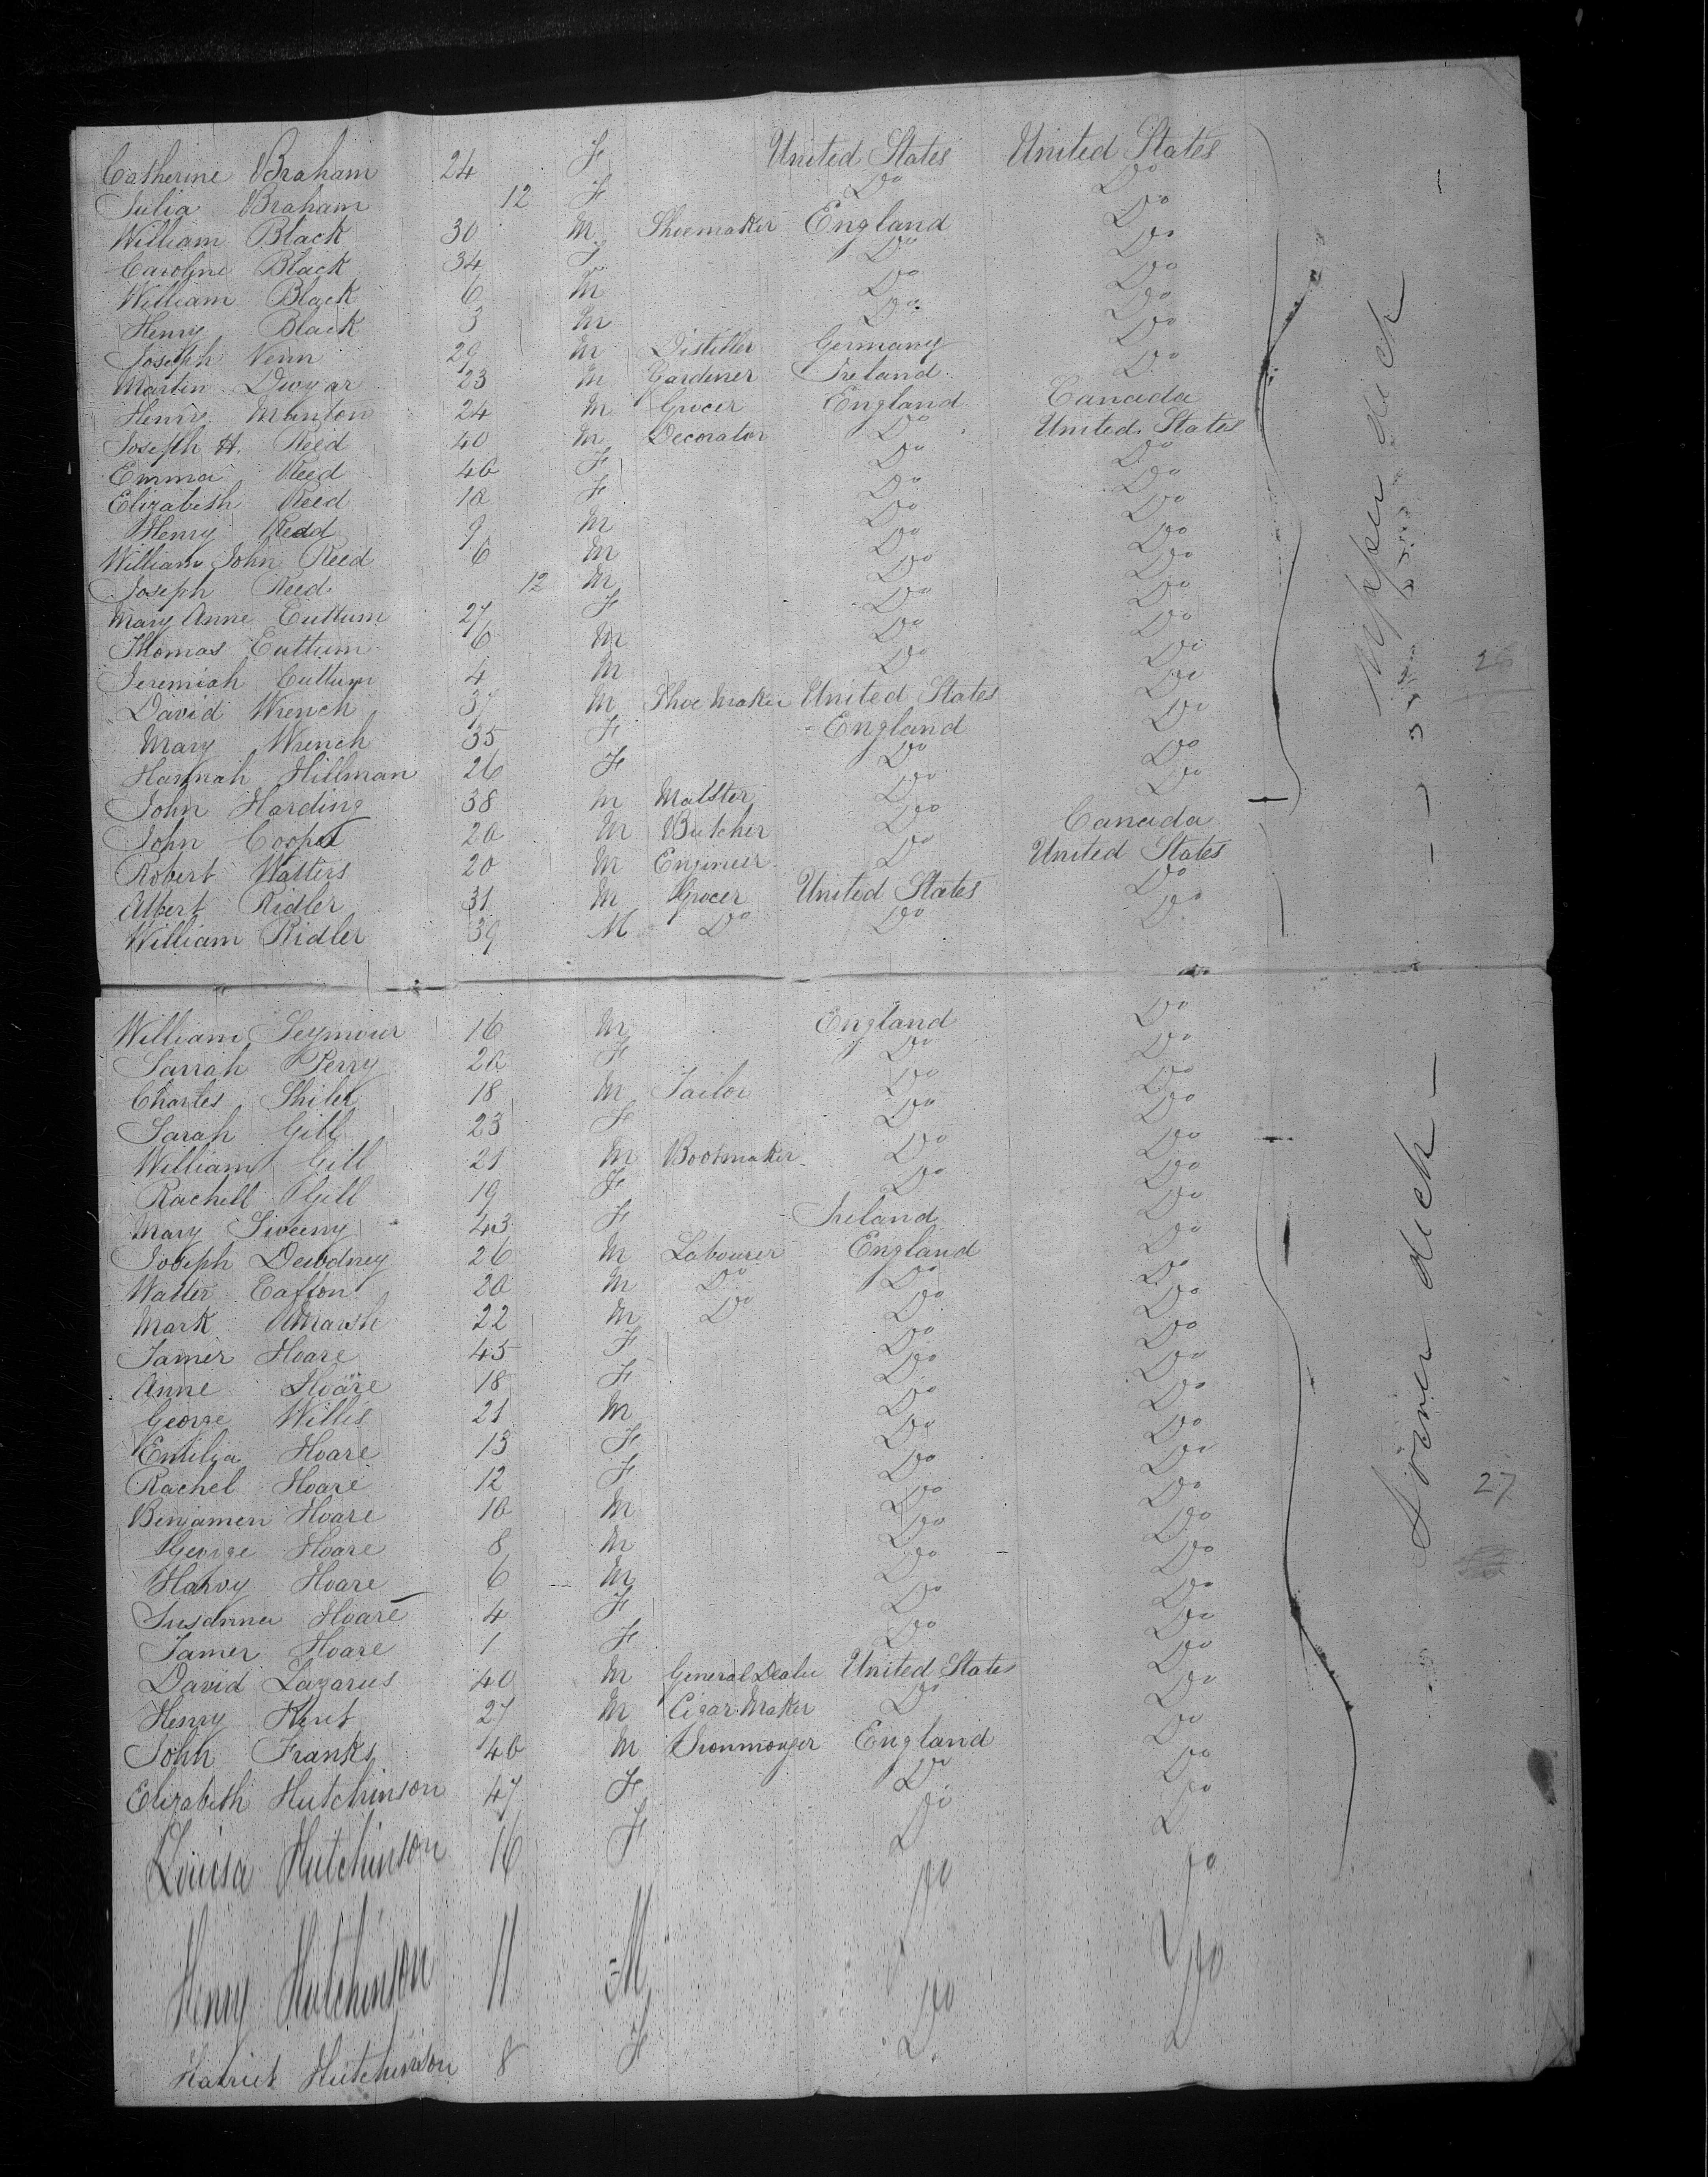 Catherine Braham 24 F United States United States
Julia Braham 12 F Do Do
William Black 30 M Shoemaker England Do
Caroline Black 34 F Do Do
William Black 6 M Do Do
Henry Black 3 M Do Do
Joseph Venn 29 M Distiller Germany Do
Martin Dwyar 23 M Gardener Ireland Do
Henry Munton 24 M Grocer England Canada
Joseph H. Reed 40 M Decorator Do United States
Emma Reed 46 F Do Do
Elizabeth Reed 10 F Do Do
Henry Reed 9 M Do Do
William John Reed 6 M Do Do
Joseph Reed 12 M Do Do
Mary Anne Cuttum 27 F Do Do
Thomas Cuttum 6 M Do Do
Jeremiah Cuttum 4 M Do Do
David Wrench 37 M Shoe Maker United States Do
Mary Wrench 35 F England Do
Hannah Hillman 26 F Do Do
John Harding 38 M Malster Do Do
John Cooper 20 M Butcher Do Canada
Robert Watters 20 M Engineer Do United States
Albert Ridler 31 M Grocer United States Do
William Ridler 39 M Do Do Do
Upper deck
26
William Seymour 16 M England Do
Sarrah Perry 20 F Do Do
Charles 18 M Tailor Do Do
Sarah Gill 23 F Do Do
William Gill 21 M Bootmaker Do Do
Rachell Gill 19 F Do Do
Mary Sweeny 43 F Ireland Do
Joseph Dewdney 26 M Labourer England Do
Walter 20 M Do Do Do
Mark 22 M Do Do Do
Tamer Hoare 45 F Do Do
Anne Hoare 18 F Do Do
George Willis 21 M Do Do
Emilya Hoare 13 F Do Do
Rachel Hoare 12 F Do Do
Benjamen Hoare 10 M Do Do
George Hoare 8 M Do Do
Harvy Hoare 6 M Do Do
Susanna Hoare 4 F Do Do
Tamer Hoare 1 F Do Do
David Lazarus 40 M General Dealer United States Do
Henry Kent 27 M Cigar Maker Do Do
John Franks 46 M Ironmonger England Do
Elizabeth Hutchinson 47 F Do Do
Louisa Hutchinson 16 F Do Do
Henry Hutchinson 11 M Do Do
Harriet Hutchinson 8 F Do Do
deck
27